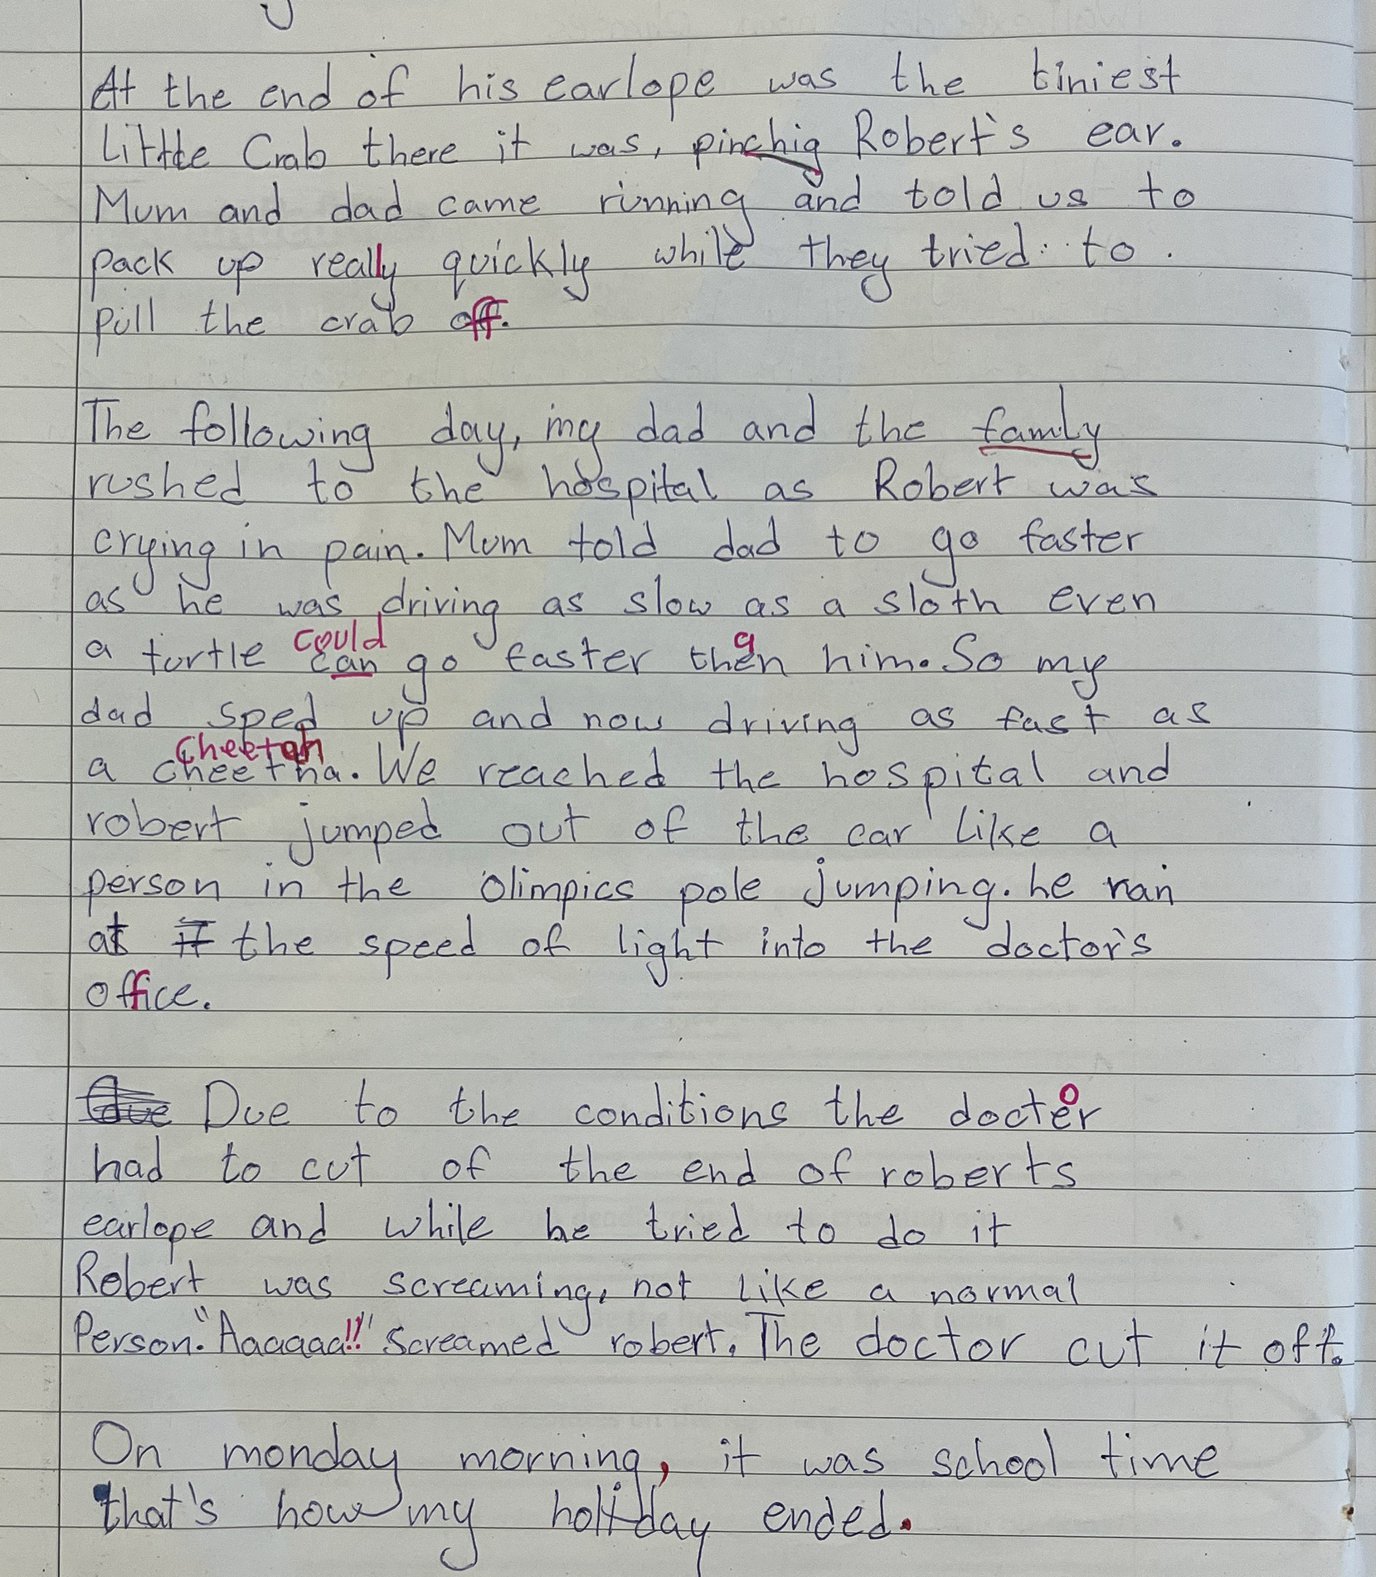 At the end of his earlope was the tiniest
Little Crab there it was, pinchig Robert's ear.
Mum and dad came running and told us to
pack up really quickly while they tried to
pull the crab off.
The following day, my dad and the family
rushed to the hospital as Robert was
crying in pain. Mum told dad to go faster
as he was driving as slow as a sloth even
could
a turtle can go faster then him. So my
a
dad sped up and now driving as fast as
cheetah
a cheetha. We reached the hospital and
robert jumped out of the car like a
person in the olimpics pole jumping. he ran
at the speed of light into the doctor's
office.
Due Due to the conditions the docter
o
had to cut of the end of roberts
earlope and while he tried to do it
Robert was screaming, not like a normal
Person. "Aaaaaa!!" Screamed robert. The doctor cut it off.
On monday morning, it was school time
that's how my holiday ended.